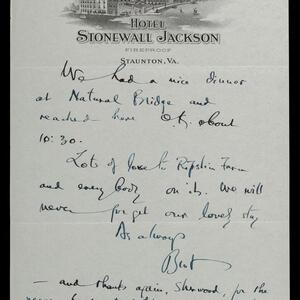 HOTEL
STONEWALL JACKSON
FIREPROOF
STAUNTON, VA.
We had a nice dinner
at Natural Bridge and
reached here O.K. about
10:30.
Lots of love to Ripshin Farm
and everybody on it. We will
never forget our lovely stay
As always
Burt
— and thanks again, Sherwood, for the